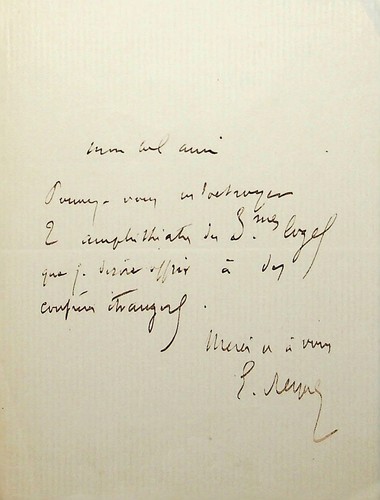 mon bel ami
Pouvez-vous m'octroyer
2 amphithéatre des 3.mes loges
que je désire offrir à des
confrères étrangers.
Merci et à vous
E. Reyer